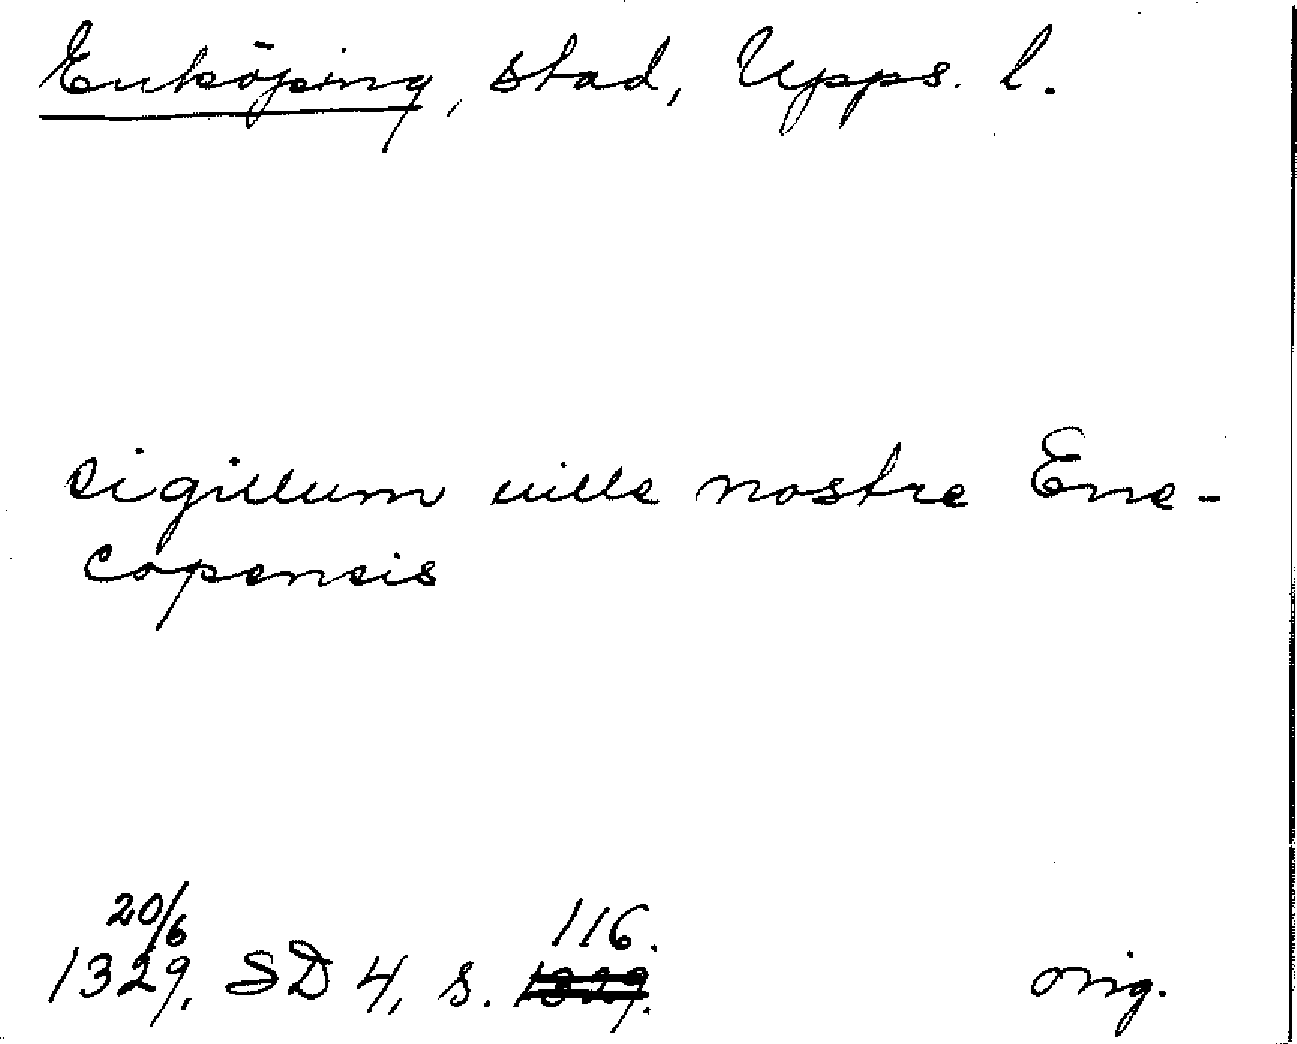 Enköping, stad, Upps. l.
sigillum uille nostre Ene-
copensis
20/6
116.
1329, SD 4, s. 1329. orig.